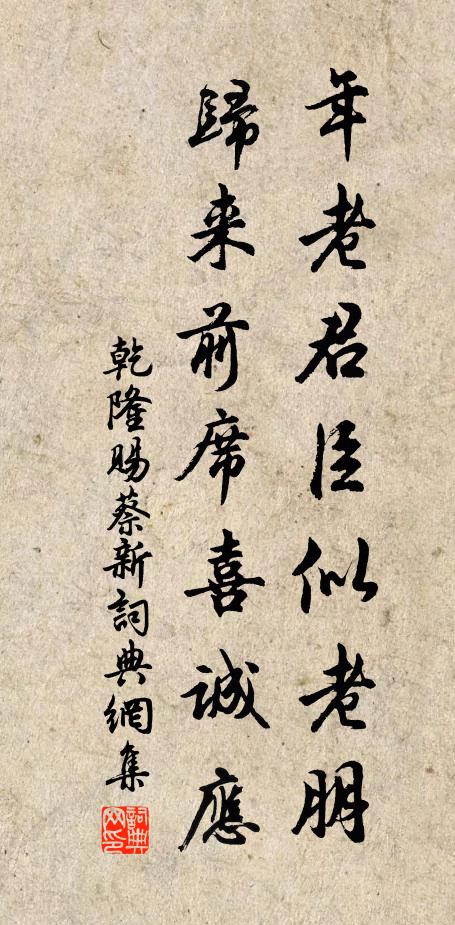 年老君臣似老朋
歸来前席喜誠應
乾隆賜蔡新詞典網集
詞典网印